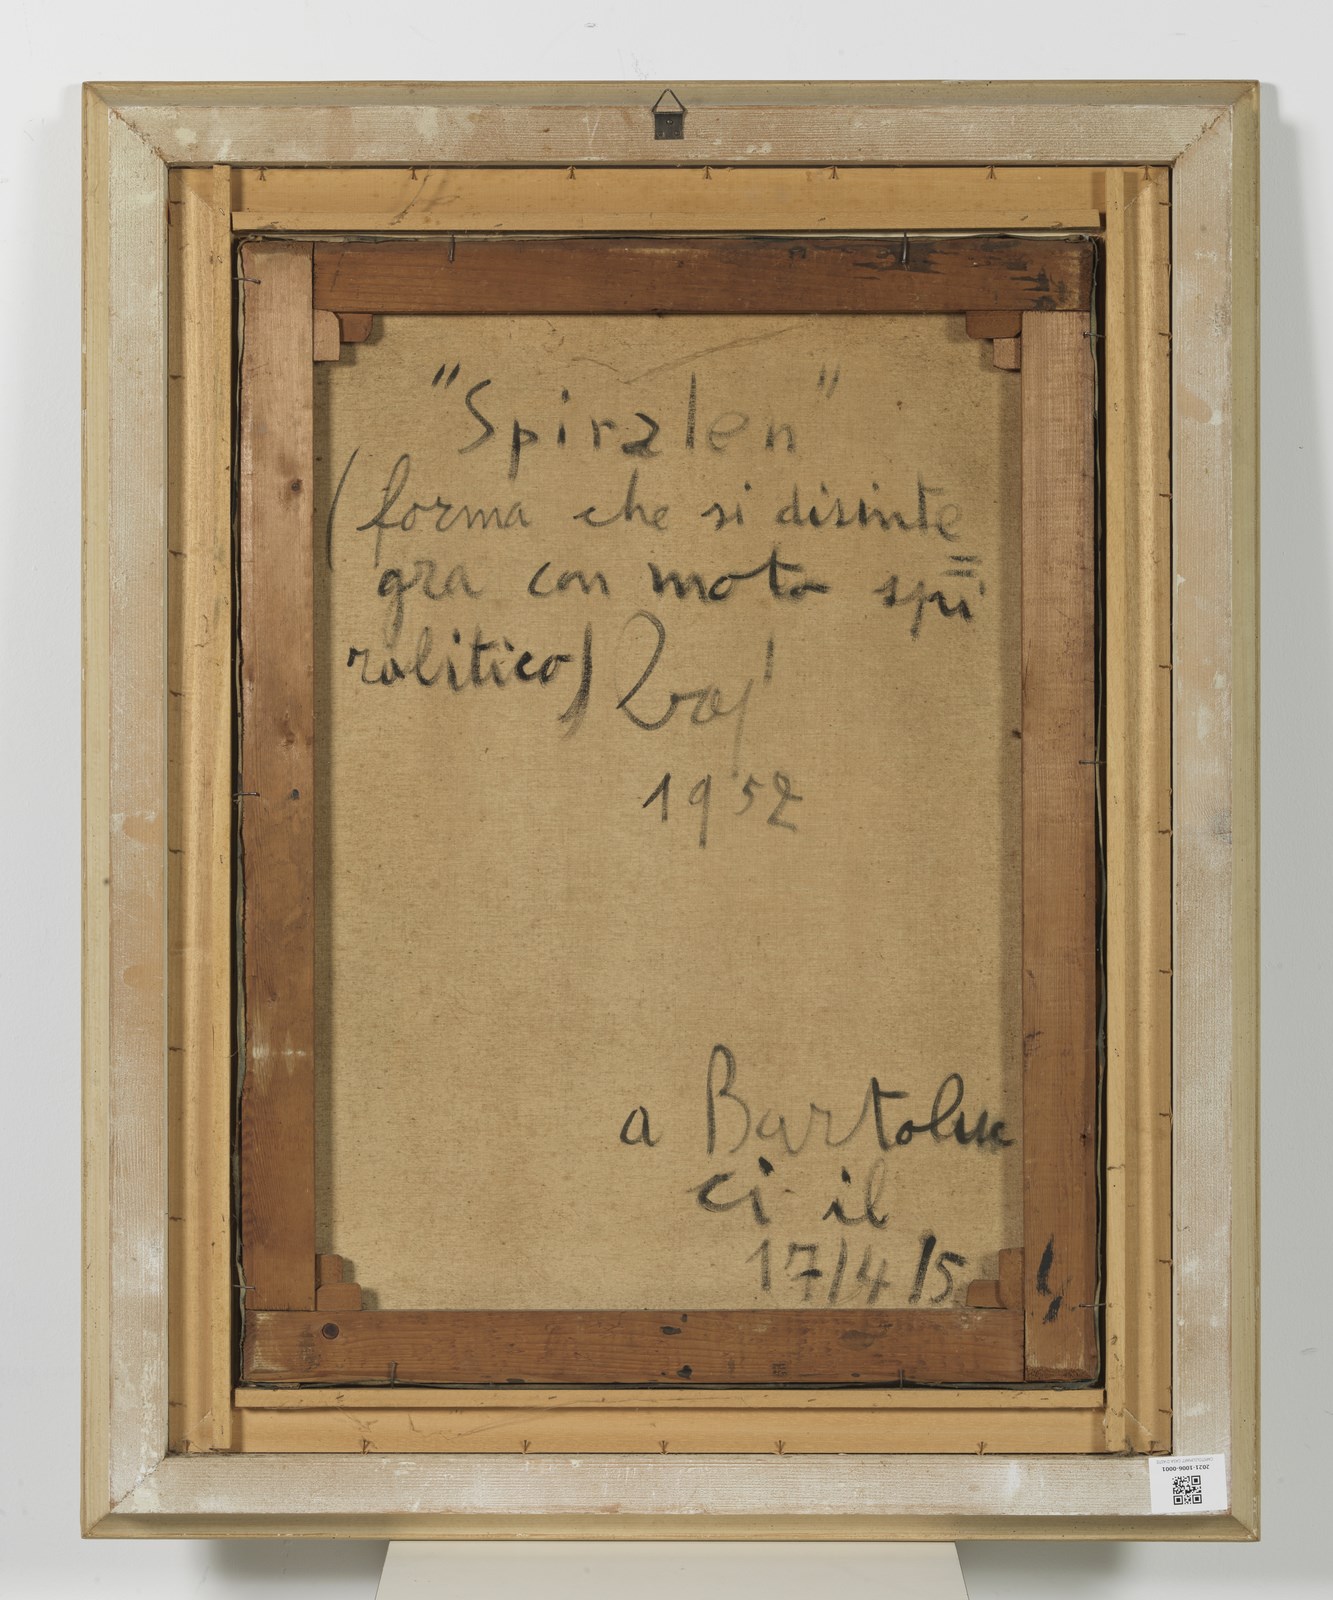 "Spiralen"
(forma che si disinte
gra con moto spi=
ralitico) Baj
1952
a Bartoluc
ci il
17/4/54
2021-1006-0001